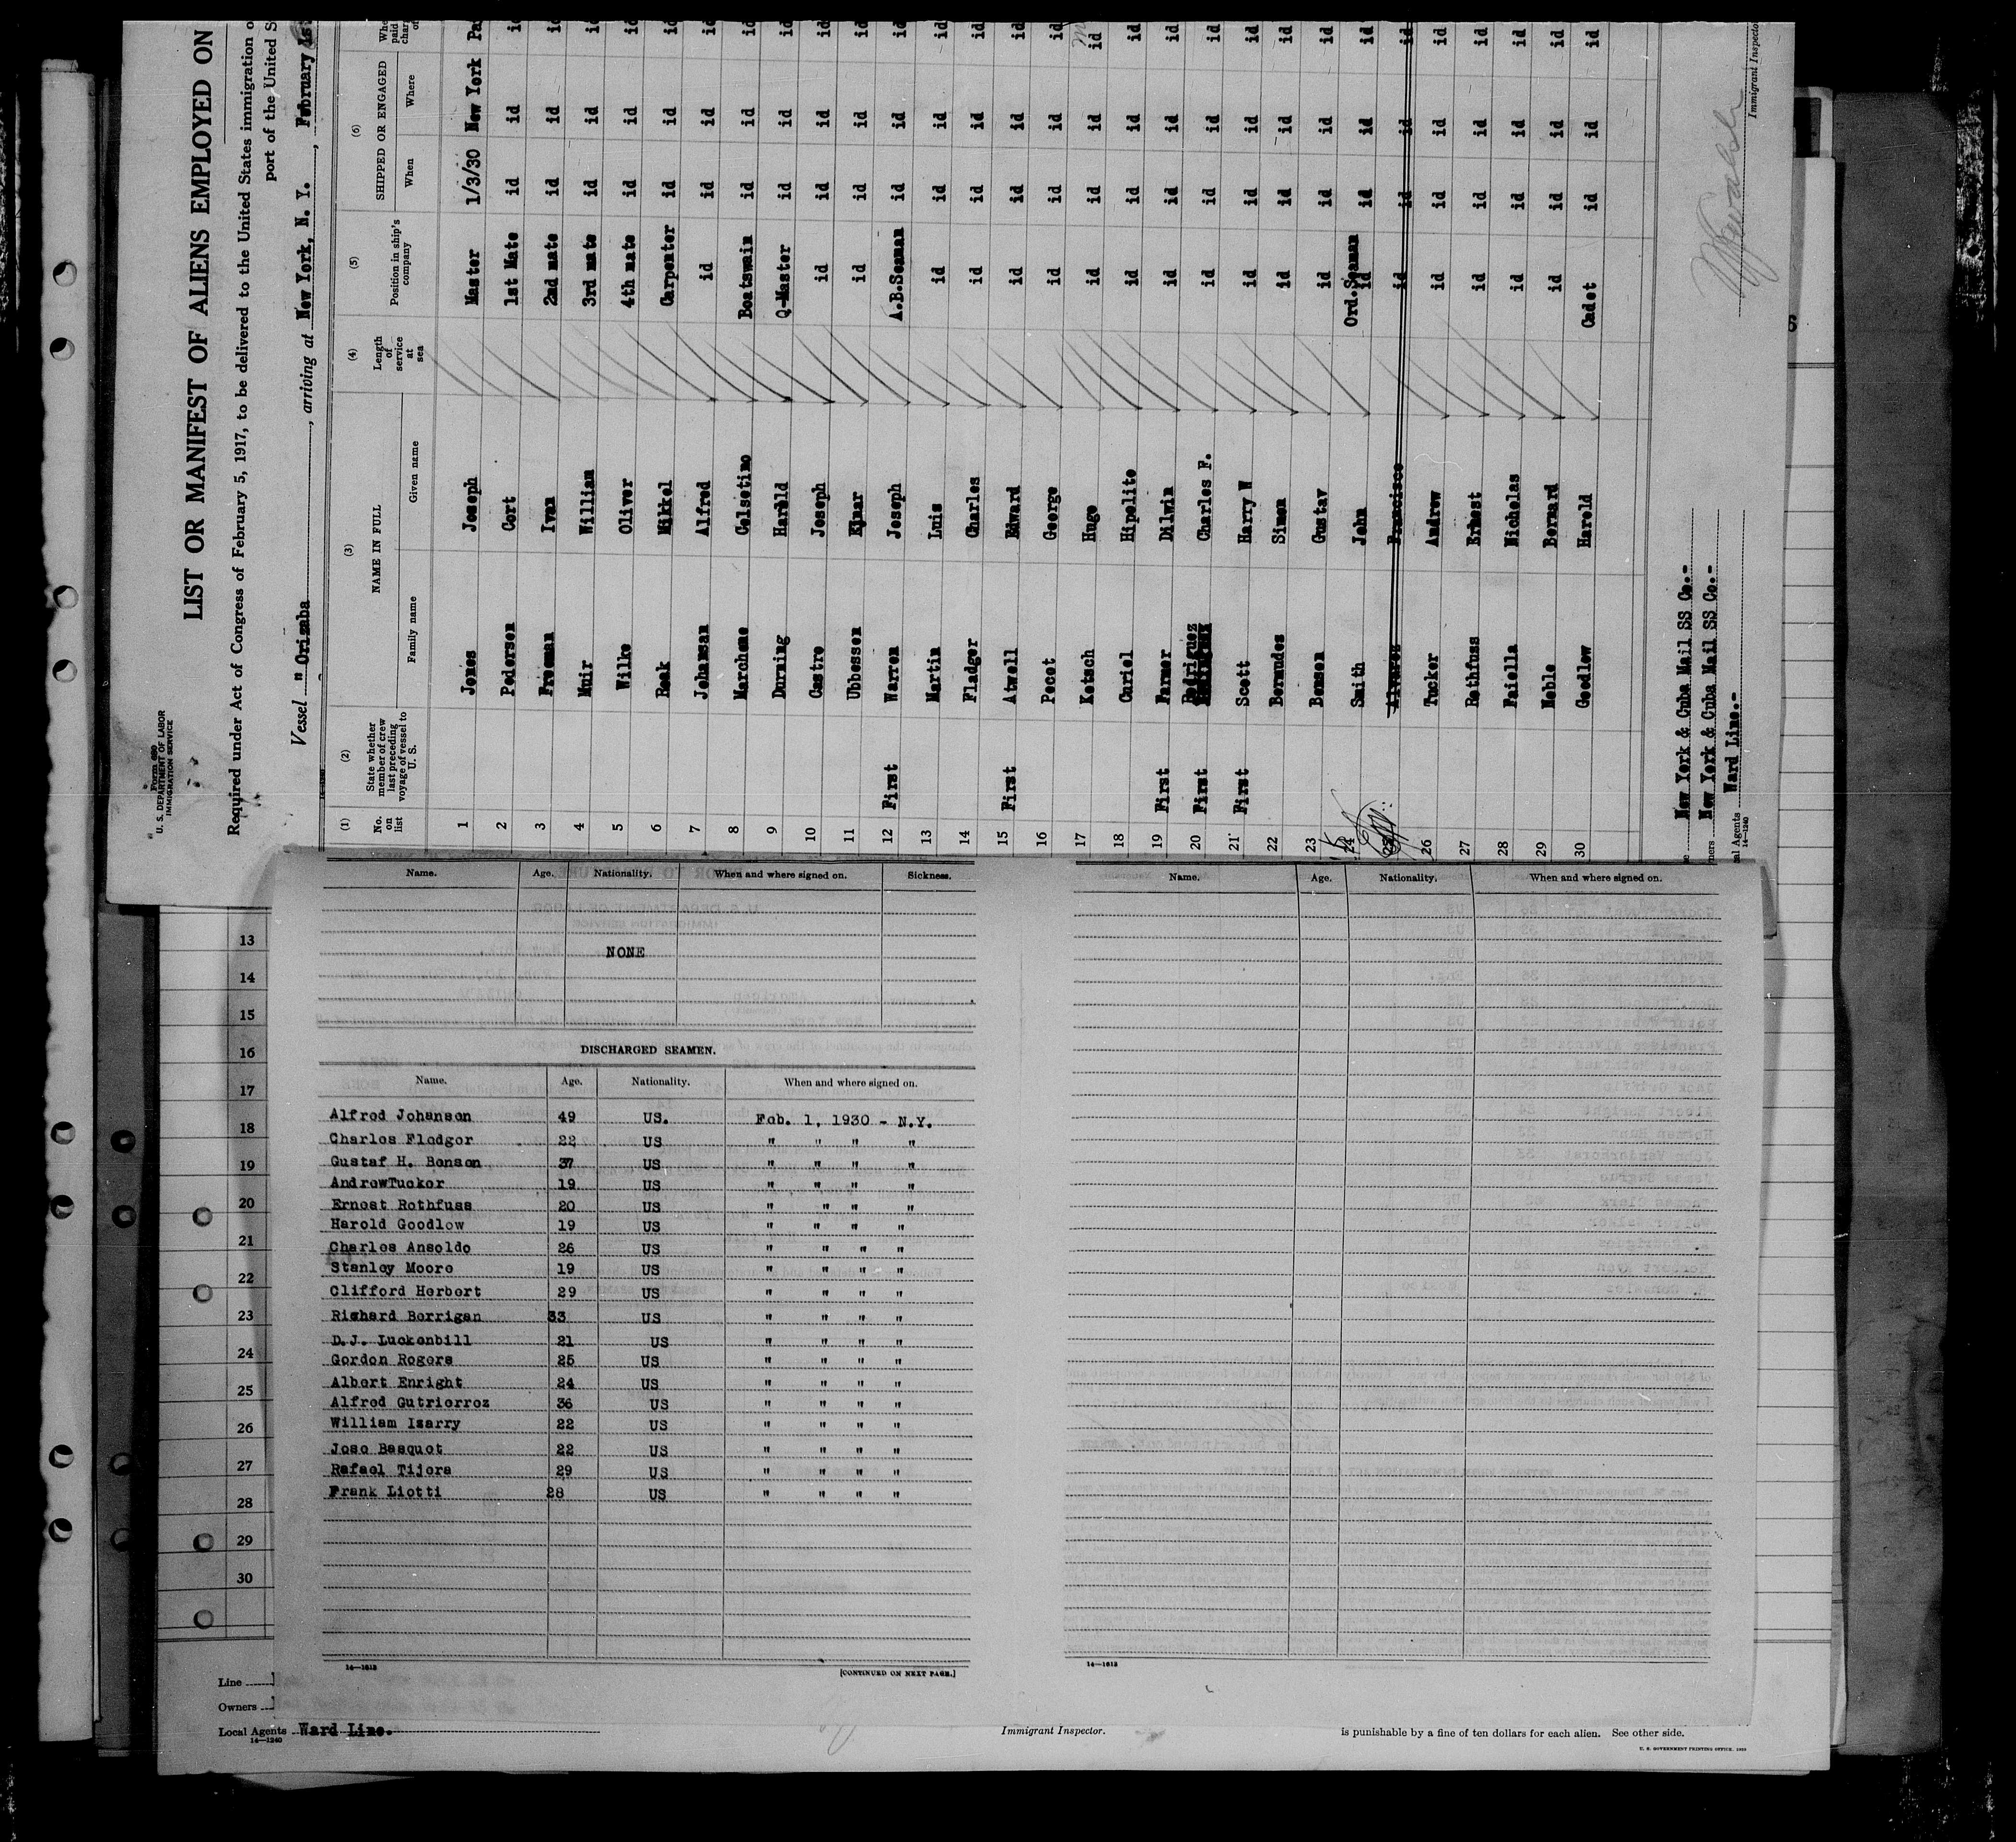 Form 680
U. S. DEPARTMENT OF LABOR
IMMIGRATION SERVICE
LIST OR MANIFEST OF ALIENS EMPLOYED ON
Required under Act of Congress of February 5, 1917, to be delivered to the United States immigration
port of the United S
Vessel "Orizaba, arriving at New York, N. Y., February 1st
(1) (2) (3) (4) (5) (6)
No. on list State whether member of crew last preceding voyage of vessel to U. S. NAME IN FULL Length of service at sea Position in ship's company SHIPPED OR ENGAGED
Family name Given name When Where
1 Jones Joseph Master 1/3/30 New York Pa
2 Pedersen Cort 1st Mate id id id
3 Freeman Ivan 2nd mate id id id
4 Muir William 3rd mate id id id
5 Wilke Oliver 4th mate id id id
6 Reak Mikkel Carpenter id id id
7 Johansan Alfred id id id id
8 Marchene Celsetino Boatswain id id id
9 Durning Harold Q-Master id id id
10 Castro Joseph id id id id
11 Ubbessen Ejnar id id id id
12 First Warren Joseph A.B.Seaman id id id
13 Martin Luis id id id id
14 Fladger Charles id id id id
15 First Atwell Edward id id id id
16 Pecot George id id id id
17 Ketsch Hugo id id id id
18 Curiel Hipolite id id id id
19 First Farmer Dilwin id id id id
20 First Rodriguez Charles F. id id id id
21 First Scott Harry W id id id id
22 Bermudes Simon id id id id
23 Bensen Gustav id id id id
24 Smith John Ord.Seaman id id id id
25 Alvarez Francisco id id id id
26 Tucker Andrew id id id id
27 Rothfuss Ernest id id id id
28 Faiella Nicholas id id id id
29 Noble Bernard id id id id
30 Goodlow Harold Cadet id id id
New York & Cuba Mail SS Co.-
New York & Cuba Mail SS Co.-
Ward Line.-
al Agents
14—1240
Immigrant Inspector
Name. Age. Nationality. When and where signed on. Sickness.
NONE
DISCHARGED SEAMEN.
Name. Age. Nationality. When and where signed on.
Alfred Johanson 49 US. Feb. 1, 1930 - N.Y.
Charles Fledger 22 US " " " "
Gustaf H. Benson 37 US " " " "
AndrewTucker 19 US " " " "
Ernest Rothfuss 20 US " " " "
Harold Goodlow 19 US " " " "
Charles Ansoldo 26 US " " " "
Stanley Moore 19 US " " " "
Clifford Herbert 29 US " " " "
Richard Berrigan 33 US " " " "
D.J. Luckenbill 21 US " " " "
Gordon Rogers 25 US " " " "
Albert Enright 24 US " " " "
Alfred Gutrierroz 36 US " " " "
William Izarry 22 US " " " "
Jose Basquet 22 US " " " "
Rafael Tijora 29 US " " " "
Frank Liotti 28 US " " " "
14—1613
[CONTINUED ON NEXT PAGE.]
Name. Age. Nationality. When and where signed on.
14—1613
13
14
15
16
17
18
19
20
21
22
23
24
25
26
27
28
29
30
Line
Owners
Local Agents Ward Line.
14—1240
Immigrant Inspector.
is punishable by a fine of ten dollars for each alien. See other side.
U. S. GOVERNMENT PRINTING OFFICE. 1929